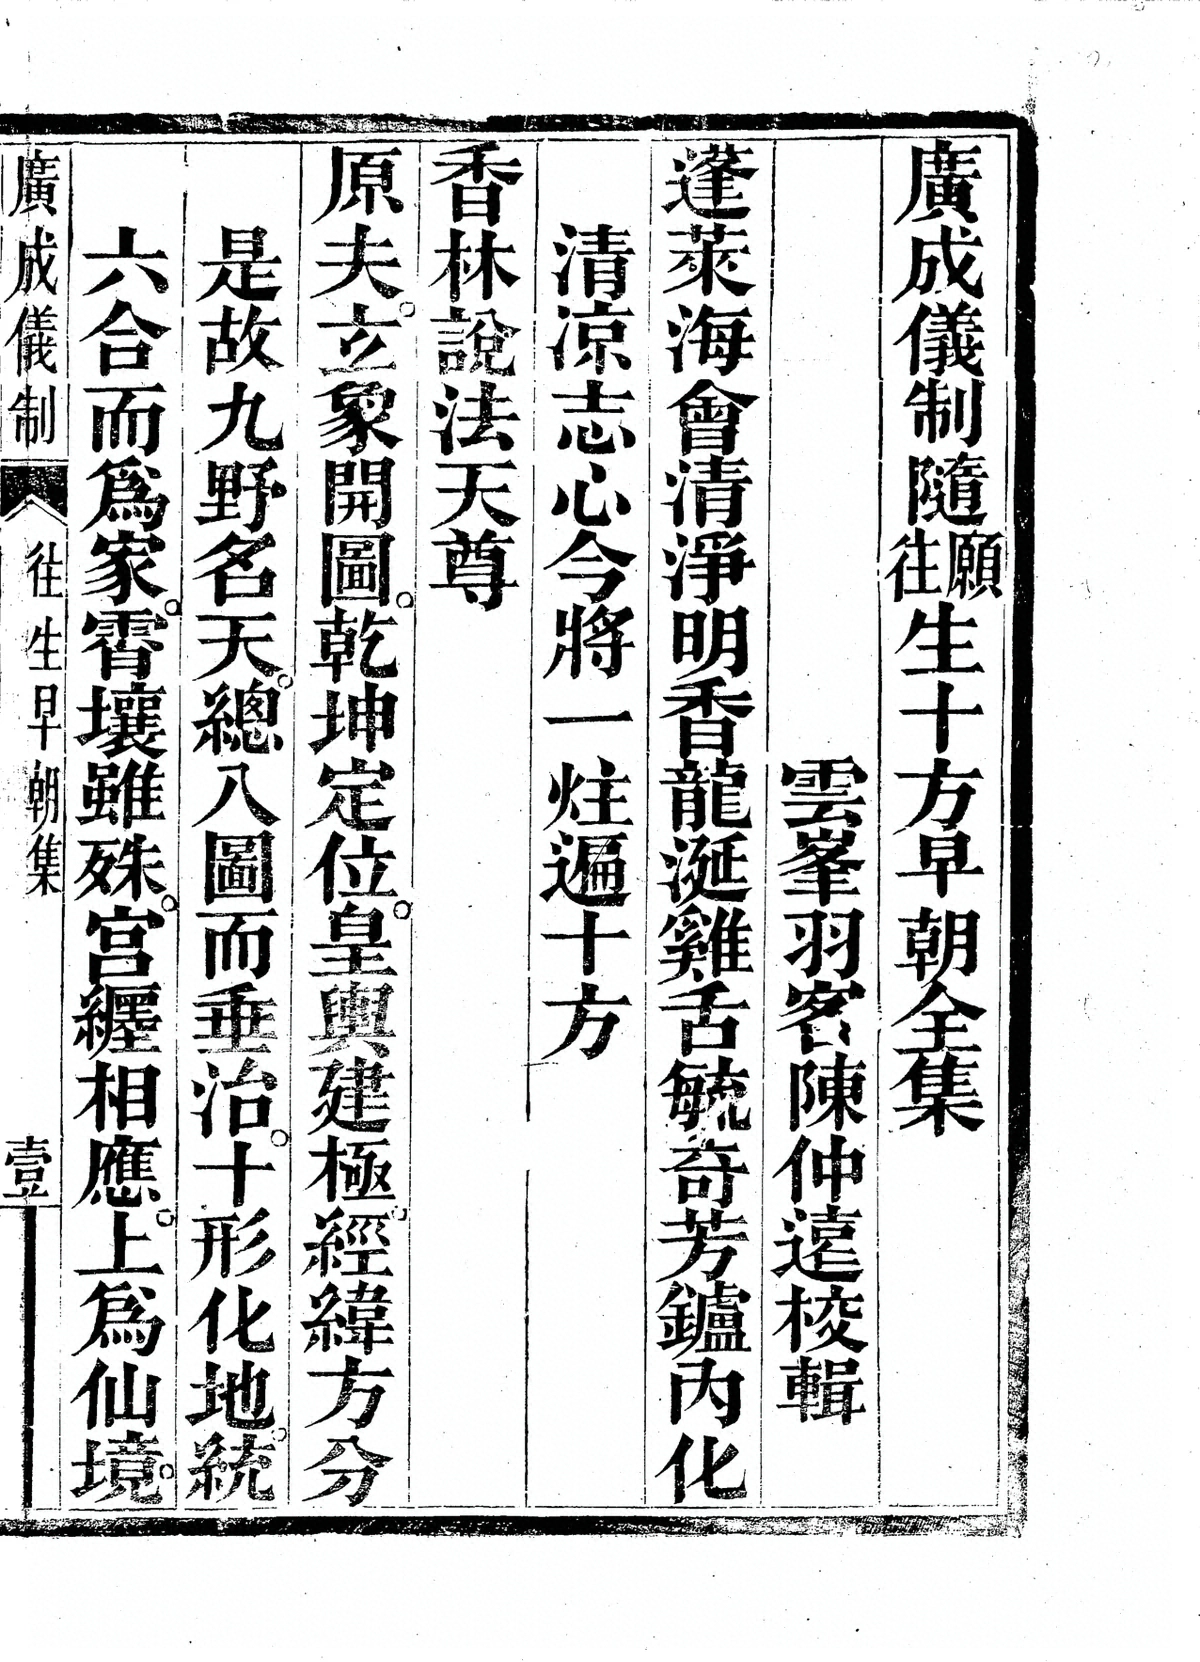 廣成儀制隨願往生十方早朝全集
雲峯羽客陳仲遠校輯
蓬萊海會清淨明香龍涎雞舌毓奇芳鑪內化
清凉志心今將一炷遍十方
香林說法天尊
原夫。立象開圖。乾坤定位。皇輿建極。經緯方分
是故九野名天。總八圖而垂治。十形化地。統
六合而爲家。霄壤雖殊。宫纒相應。上爲仙境。
廣成儀制 往生早朝集 壹